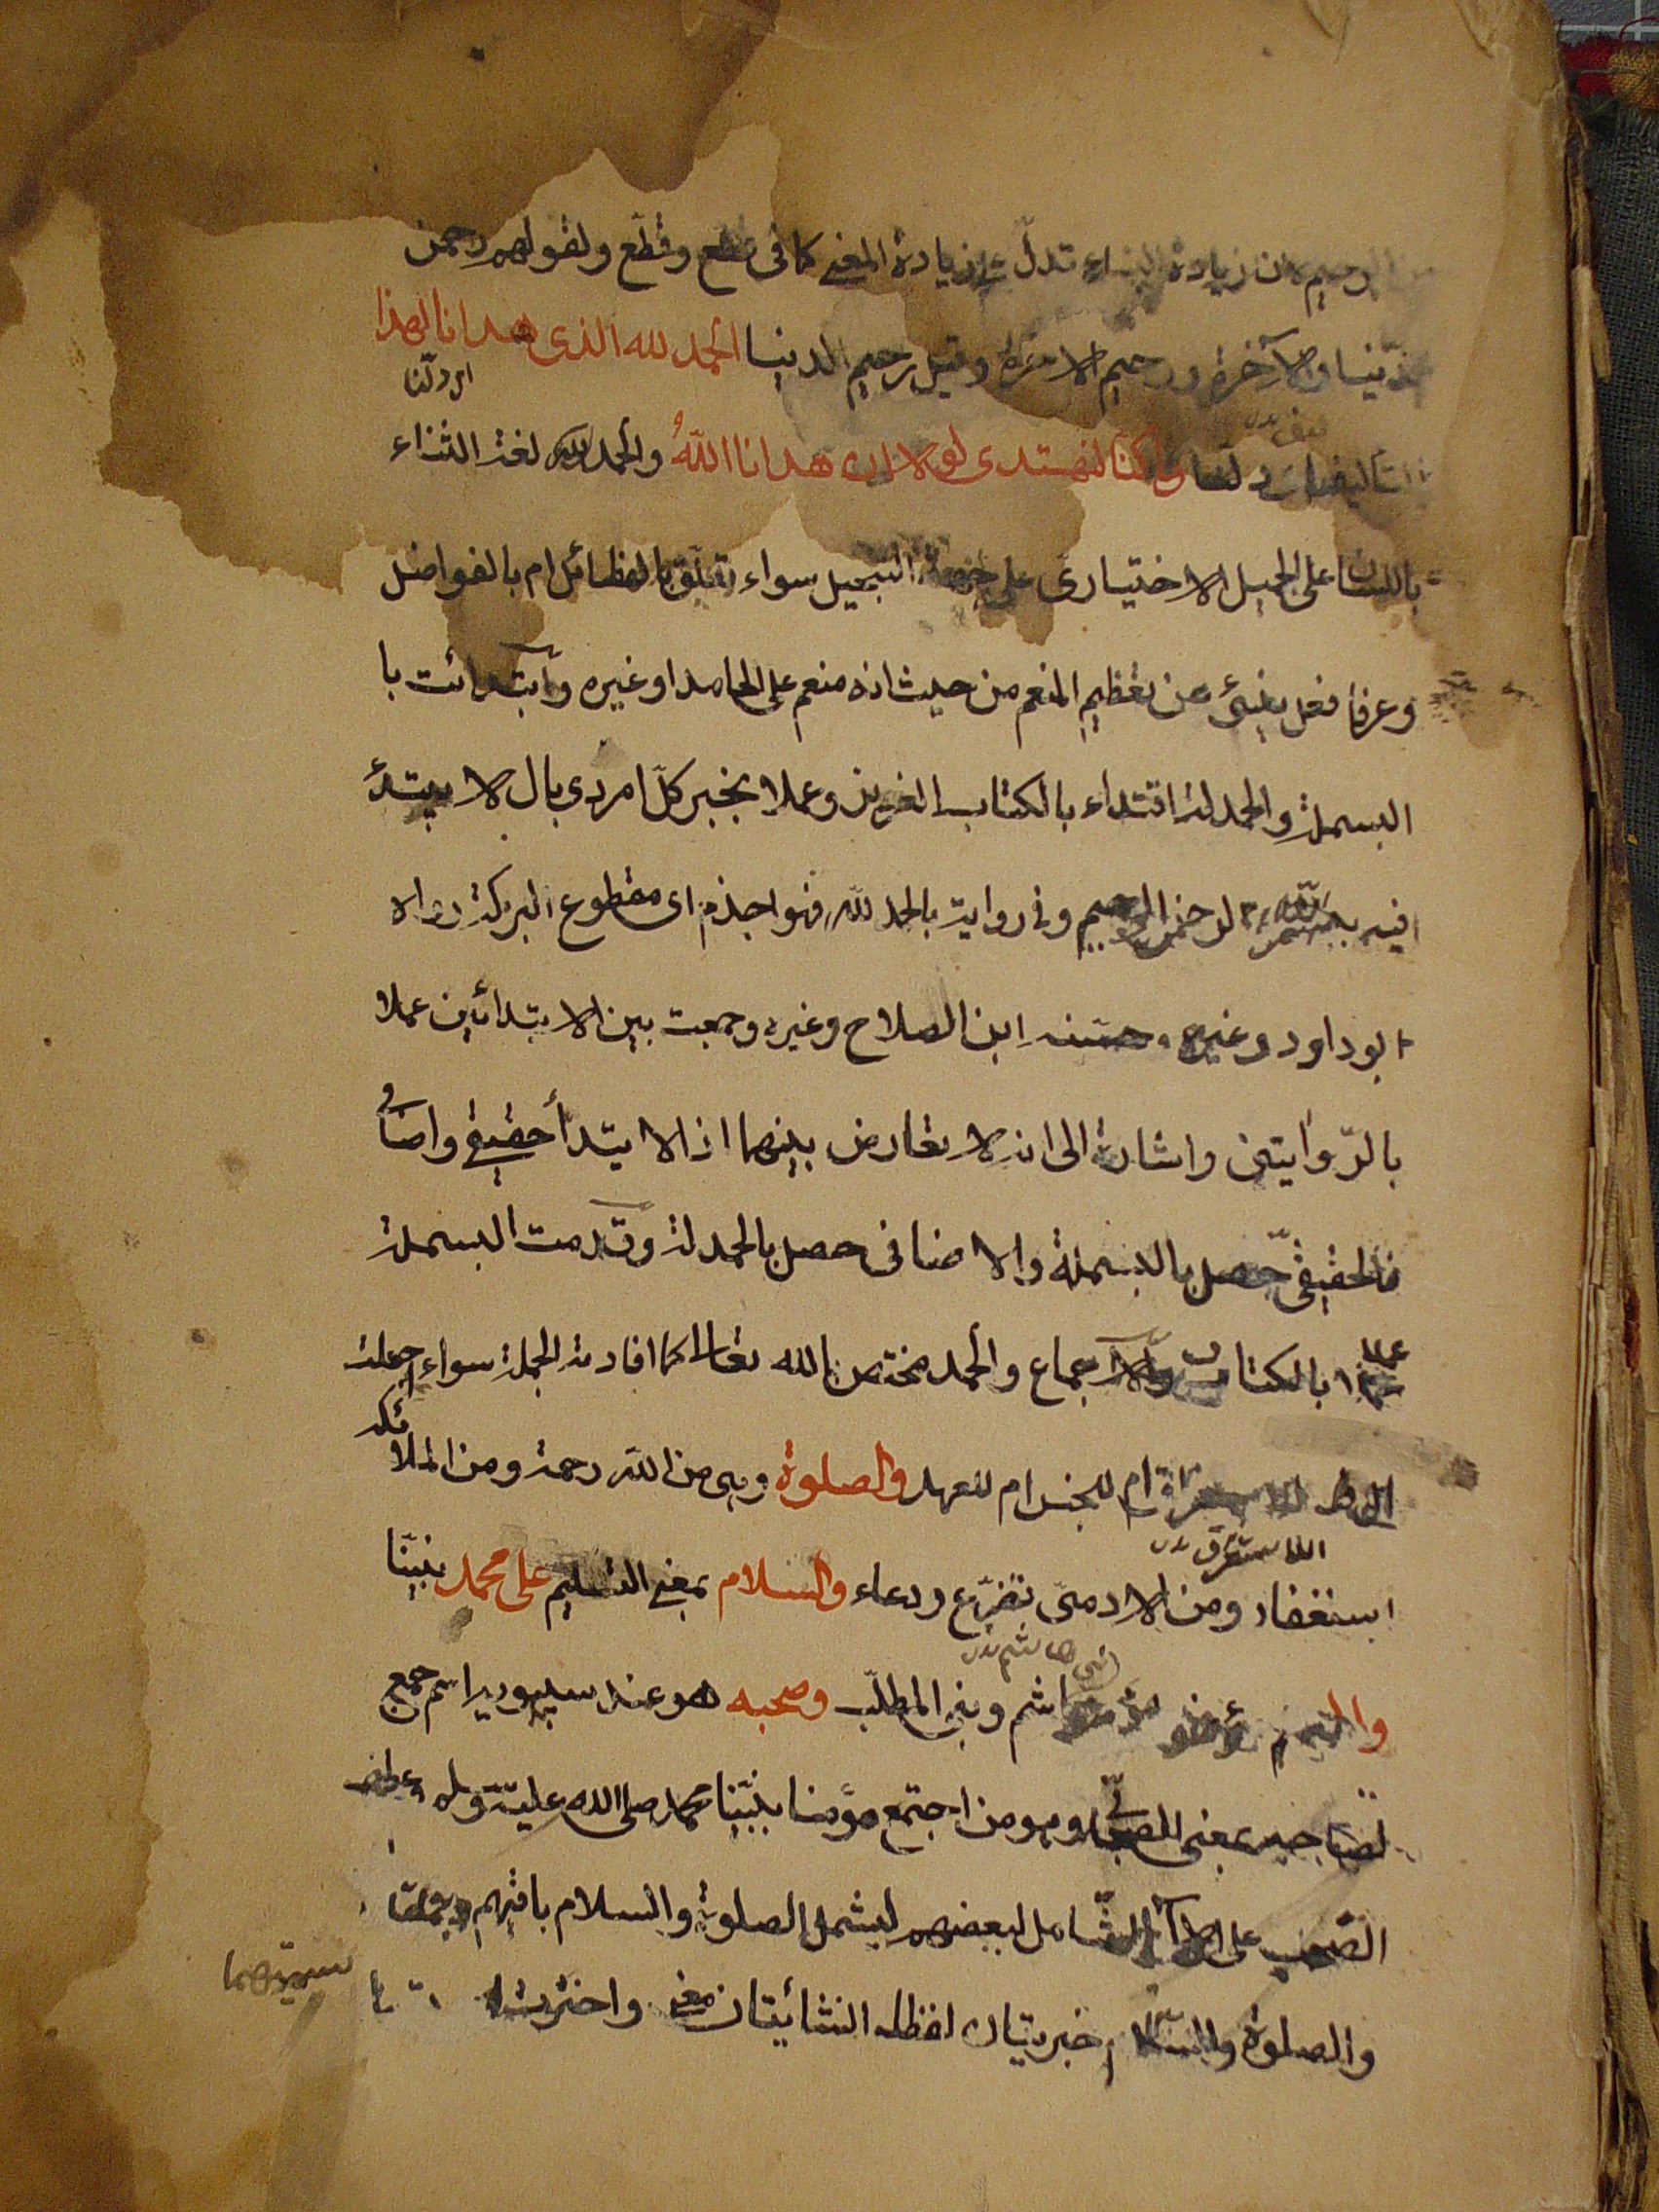 الرحيم لان زيادة البناء تدلّ على زيادة المعنى كما فى قطع وقطّع ولقولهم رحمن
الدّنيا والآخرة ورحيم الاخرة وقيل رحيم الدنيا الحمد لله الذى هدانا لهذا
اى دلّنا
التأليف وما كنا لنهتدى لولا ان هدانا اللهُ والحمد لله لغة الثناء
باللسان على الجميل الاختيارى على جهة التبجيل سواء تعلّق بالفضائل ام بالفواضل
وعرفا فعل ينبئ عن تعظيم المنعم من حيث انه منعم على الحامد او غيره وابتدائت با
البسملة والحمدلة اقتداء بالكتاب العزيز وعملا بخبر كلّ امر ذى بال لا يبتدئ
فيه ببسم الله الرحمن الرحيم وفى رواية بالحمد لله فهو اجذم اى مقطوع البركة رواه
ابو داود وغيره وحسّنه ابن الصلاح وغيره وجمعت بين الابتدائين عملا
بالرّوايتين واشارة الى انه لا تعارض بينهما اذ الابتدأ حقيقى واضافى
فالحقيقى حصل بالبسملة والاضافى حصل بالحمدلة وقدّمت البسملة
عملا بالكتاب والاجماع والحمد مختص بالله تعالى كما افادته الجملة سواء جعلت
ال للاستغراق ام للجنس ام للعهد والصلوة وهى من الله رحمة ومن الملائكة
للاستغراق
استغفار ومن الادمىّ تضرّع ودعاء والسلام بمعنى التسليم على محمد نبيّنا
بنى هاشم
واله هاشم وبنى المطلّب وصحبه هو عند سيبويه اسم جمع
لصاحبه بمعنى الصحابى وهو من اجتمع مؤمنا بنبيّنا محمد صلى الله عليه وسلم وعطف
الصّحب على الآل الشّامل لبعضهم ليشمل الصلوة والسلام باقيهم وجملتا
والصلوة والسّلام خبريتان لفظا انشائيتان معنى واخترت
سميتهما